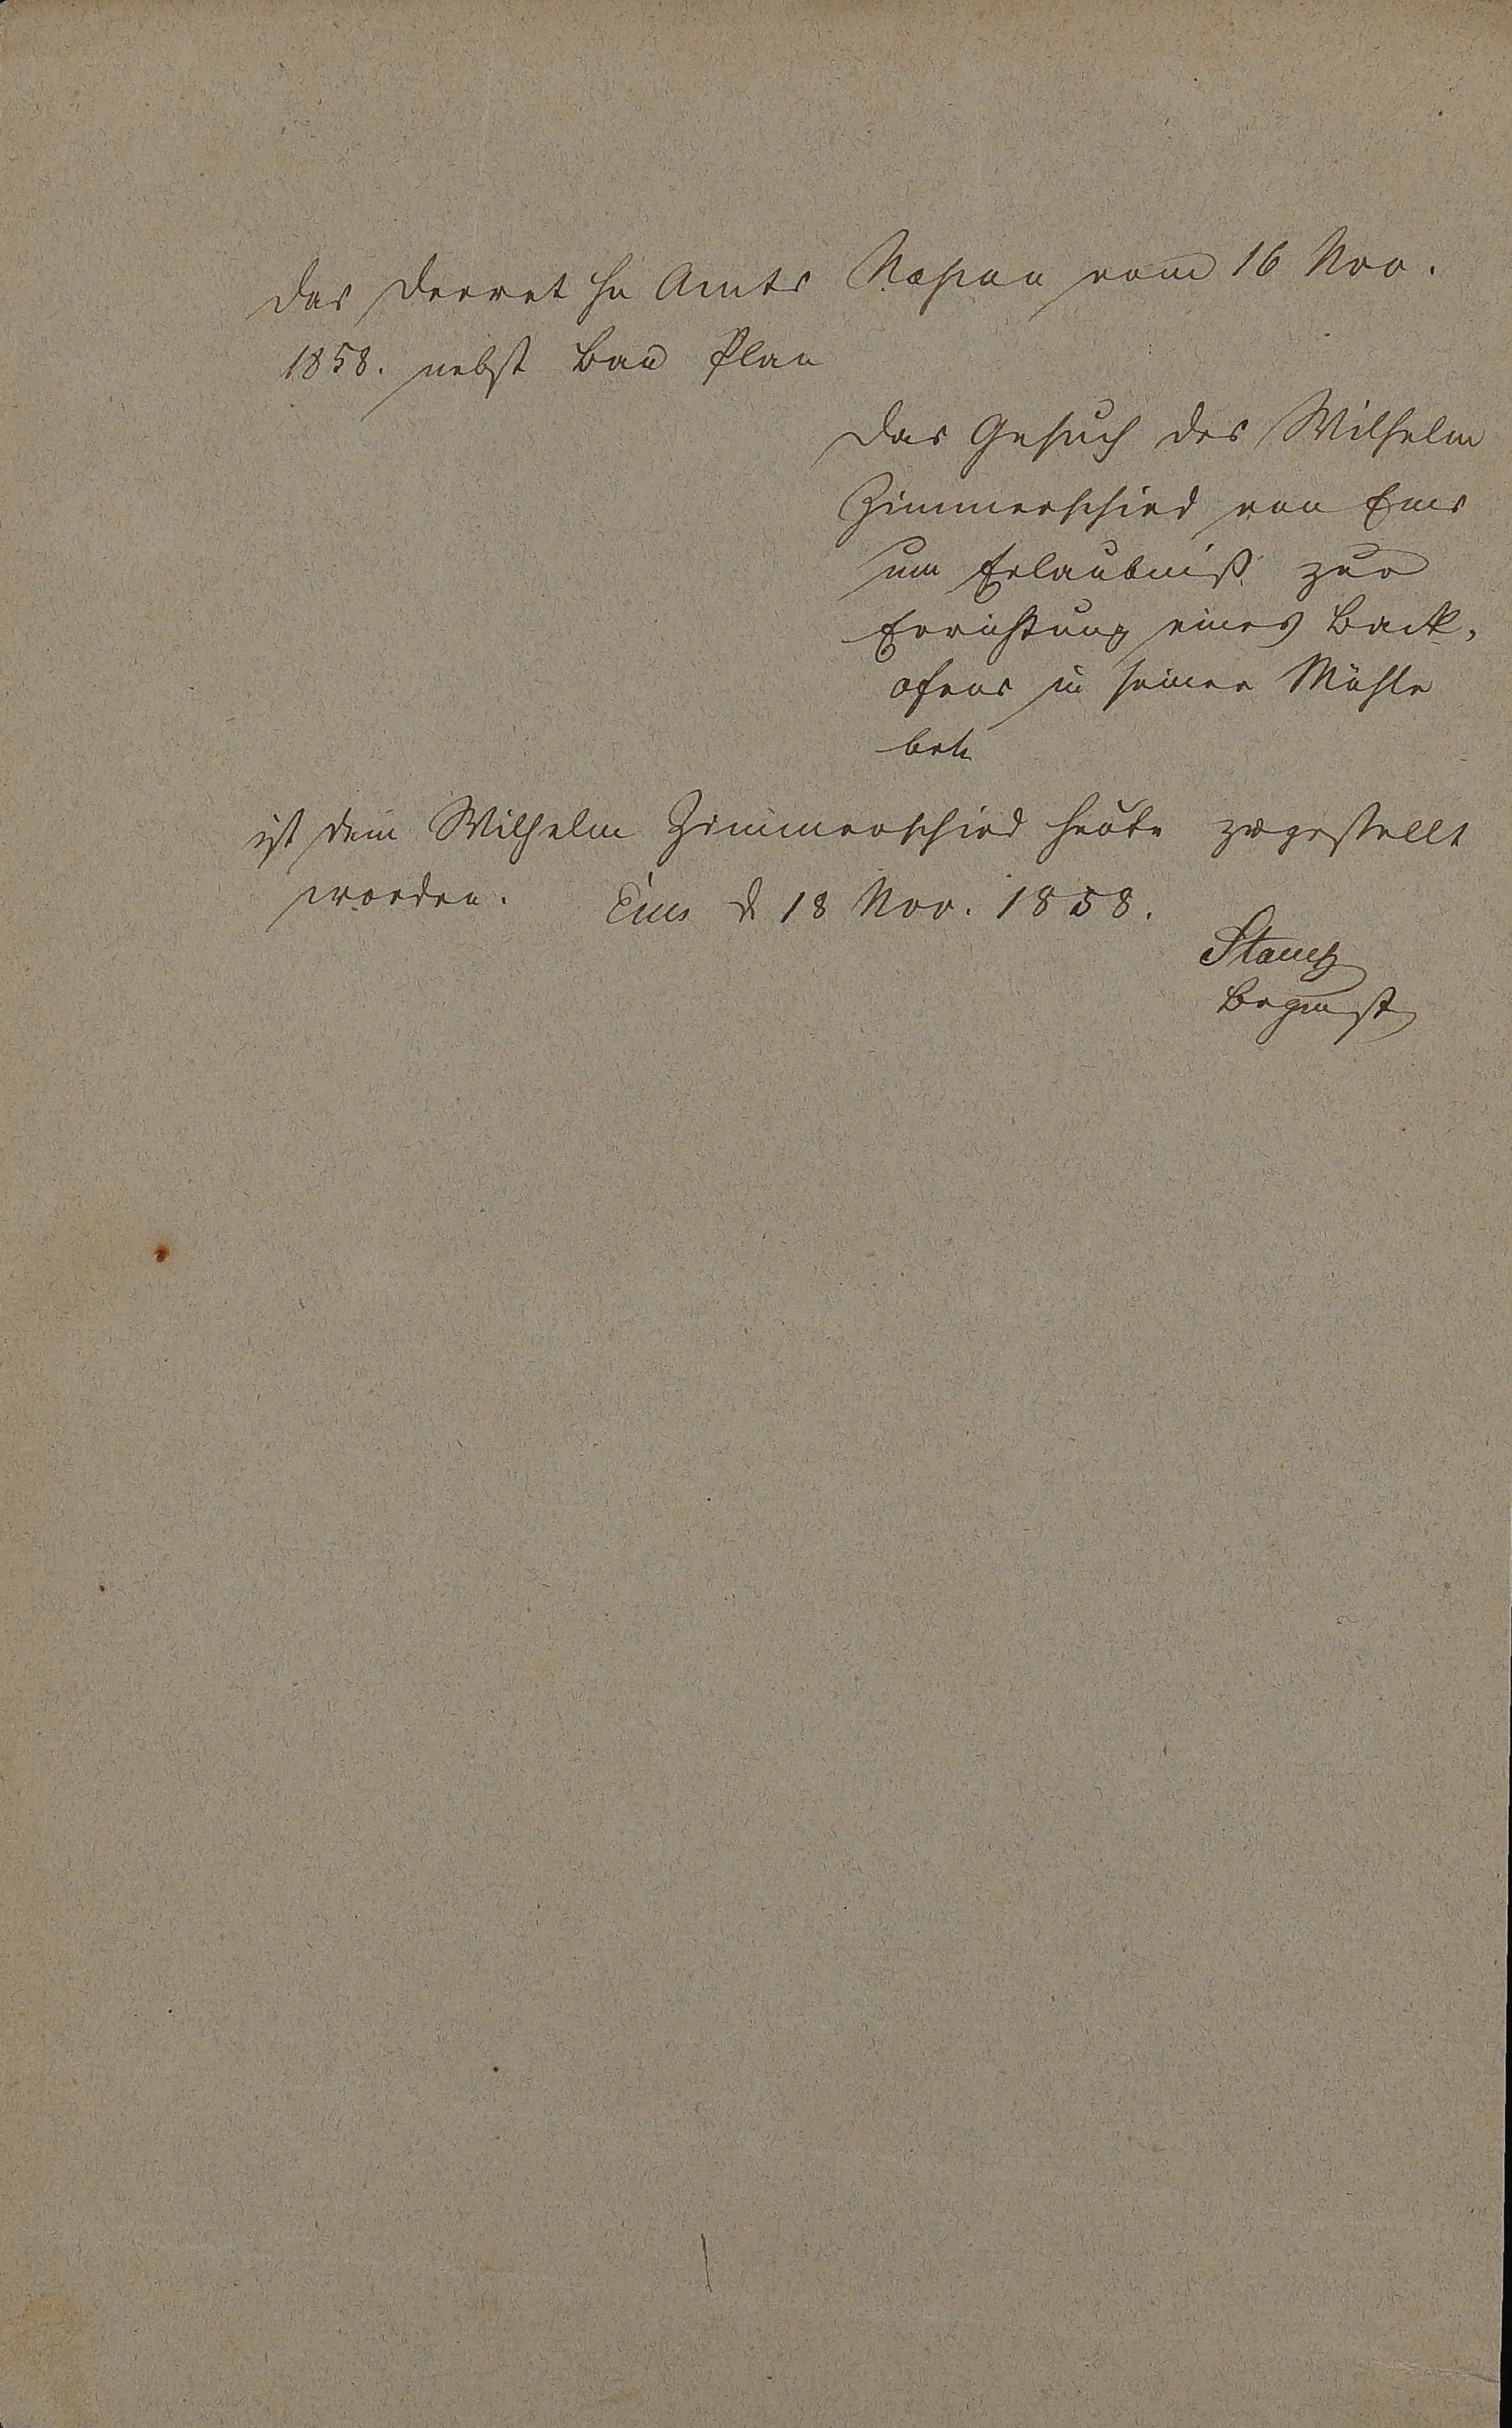 Das Decret Hn Amts Nassau vom 16 Nov.
1858. nebst Bau Plan
Das Gesuch des Wilhelm
Zimmerschied von Ems
um Erlaubniß zur
Errichtung eines Back,
ofens in seiner Mühle
betr
ist dem Wilhelm Zimmerschied heute zugestellt
worden. Ems d 18 Nov. 1858.